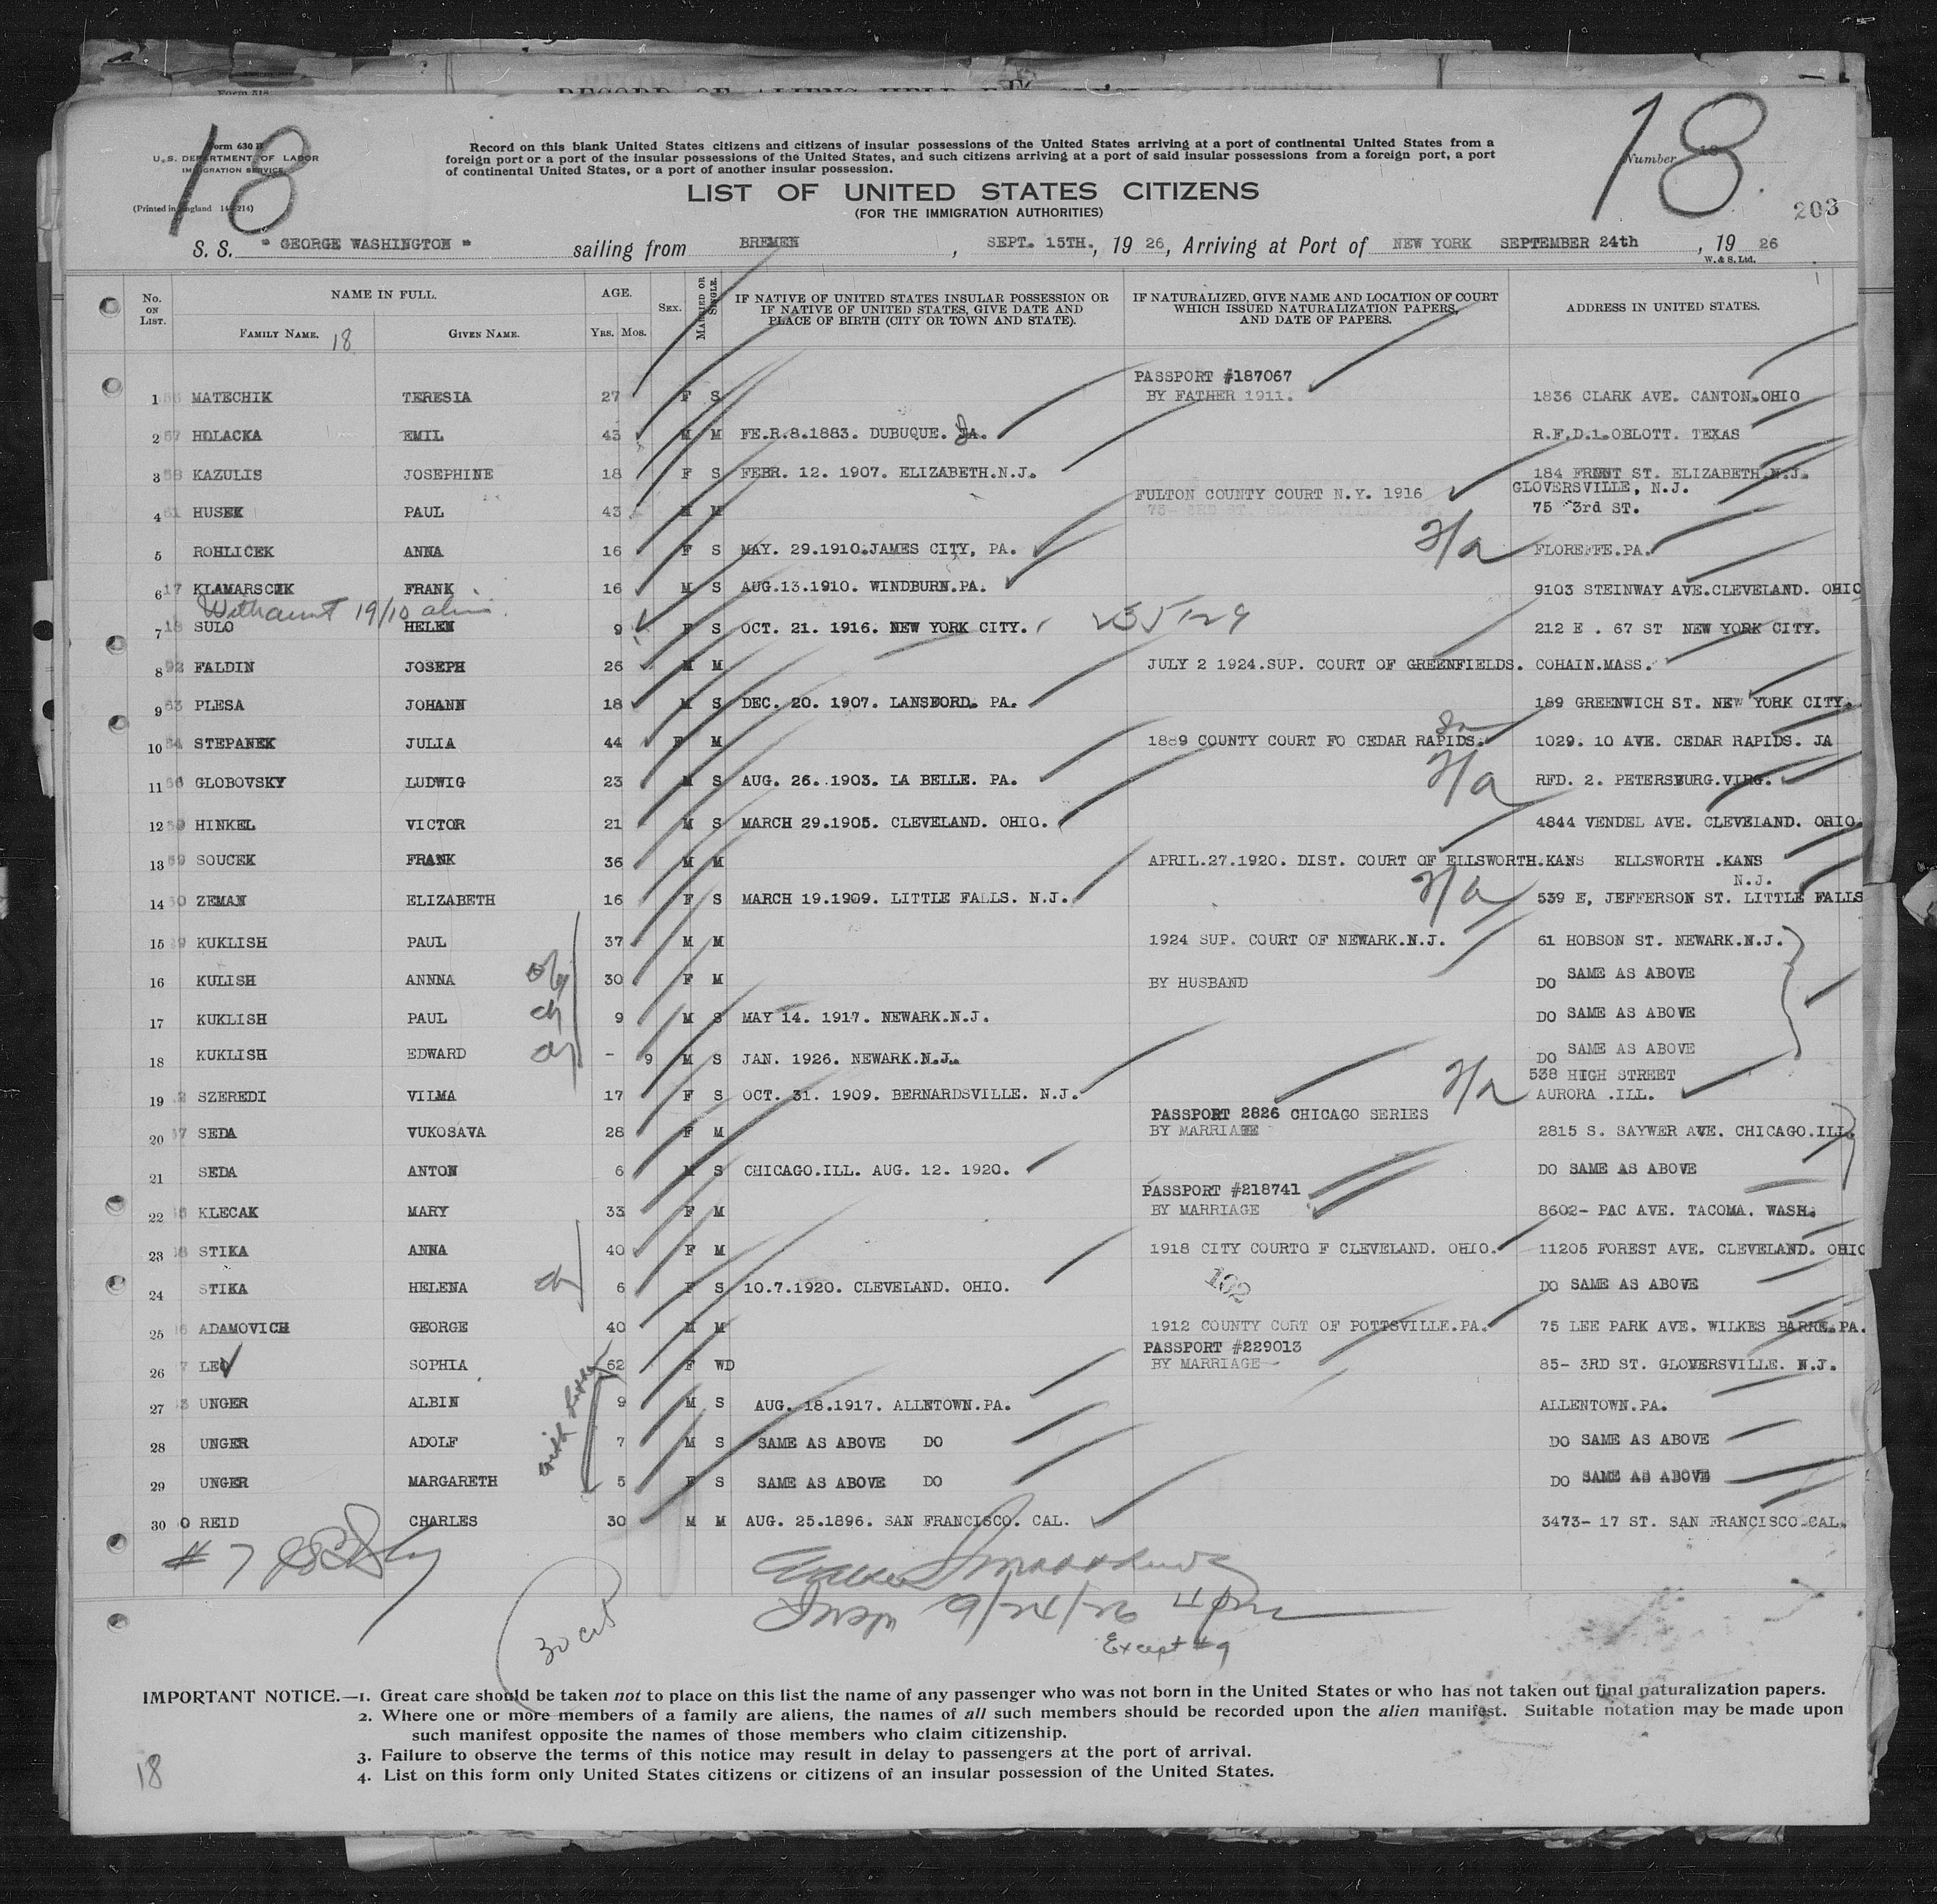 18
18
Form 630 B
U.S. DEPARTMENT OF LABOR
IMMIGRATION SERVICE
(Printed in England
Record on this blank United States citizens and citizens of insular possessions of the United States arriving at a port of continental United States from a
foreign port or a port of the insular possessions of the United States, and such citizens arriving at a port of said insular possessions from a foreign port, a port
of continental United States, or a port of another insular possession.
Number 18
LIST OF UNITED STATES CITIZENS
(FOR THE IMMIGRATION AUTHORITIES)
203
S. S. "GEORGE WASHINGTON" sailing from BREMEN, SEPT. 15TH., 1926, Arriving at Port of NEW YORK SEPTEMBER 24th, 1926
W. & S. Ltd.
No. ON LIST. NAME IN FULL. AGE. SEX. MARRIED OR SINGLE. IF NATIVE OF UNITED STATES INSULAR POSSESSION OR IF NATIVE OF UNITED STATES, GIVE DATE AND PLACE OF BIRTH (CITY OR TOWN AND STATE). IF NATURALIZED, GIVE NAME AND LOCATION OF COURT WHICH ISSUED NATURALIZATION PAPERS, AND DATE OF PAPERS. ADDRESS IN UNITED STATES.
FAMILY NAME. 18 GIVEN NAME. YRS. MOS.
PASSPORT #187067
1 MATECHIK TERESIA 27 F S BY FATHER 1911. 1836 CLARK AVE. CANTON.OHIO
2 HOLACKA EMIL 43 M M FE.R.8.1883. DUBUQUE. R.F.D.1.OBLOTT. TEXAS
3 KAZULIS JOSEPHINE 18 F S FEBR. 12. 1907. ELIZABETH.N.J. 184 FRONT ST. ELIZABETH.N.J.
FULTON COUNTY COURT N.Y. 1916 GLOVERSVILLE, N.J.
4 HUSEK PAUL 43 M M 75 3rd ST.
5 ROHLICEK ANNA 16 F S MAY. 29.1910.JAMES CITY, PA. FLOREFFE.PA.
6 KLAMARSCIK FRANK 16 M S AUG.13.1910. WINDBURN.PA. 9103 STEINWAY AVE.CLEVELAND. OHIO
With aunt 19/10 alien.
7 SULO HELEN 9 F S OCT. 21. 1916. NEW YORK CITY. 212 E . 67 ST NEW YORK CITY.
8 FALDIN JOSEPH 26 M M JULY 2 1924.SUP. COURT OF GREENFIELDS. COHAIN.MASS.
9 PLESA JOHANN 18 M S DEC. 20. 1907. LANSFORD. PA. 189 GREENWICH ST. NEW YORK CITY.
10 STEPANEK JULIA 44 F M 1889 COUNTY COURT FO CEDAR RAPIDS. 1029. 10 AVE. CEDAR RAPIDS. JA
11 GLOBOVSKY LUDWIG 23 M S AUG. 26. 1903. LA BELLE. PA. RFD. 2. PETERSBURG.VIRG.
12 HINKEL VICTOR 21 M S MARCH 29.1905. CLEVELAND. OHIO. 4844 VENDEL AVE. CLEVELAND. OHIO.
13 SOUCEK FRANK 36 M M APRIL.27.1920. DIST. COURT OF ELLSWORTH.KANS ELLSWORTH .KANS
N.J.
14 ZEMAN ELIZABETH 16 F S MARCH 19.1909. LITTLE FALLS. N.J. 539 E, JEFFERSON ST. LITTLE FALLS
15 KUKLISH PAUL 37 M M 1924 SUP. COURT OF NEWARK.N.J. 61 HOBSON ST. NEWARK.N.J.
16 KULISH ANNNA 30 F M BY HUSBAND DO SAME AS ABOVE
17 KUKLISH PAUL 9 M S MAY 14. 1917. NEWARK.N.J. DO SAME AS ABOVE
18 KUKLISH EDWARD - 9 M S JAN. 1926. NEWARK.N.J. DO SAME AS ABOVE
538 HIGH STREET
19 SZEREDI VILMA 17 F S OCT. 31. 1909. BERNARDSVILLE. N.J. AURORA .ILL.
PASSPORT 2826 CHICAGO SERIES
20 SEDA VUKOSAVA 28 F M BY MARRIAGE 2815 S. SAYWER AVE. CHICAGO.ILL.
21 SEDA ANTON 6 M S CHICAGO.ILL. AUG. 12. 1920. DO SAME AS ABOVE
PASSPORT #218741
22 KLECAK MARY 33 F M BY MARRIAGE 8602- PAC AVE. TACOMA. WASH.
23 STIKA ANNA 40 F M 1918 CITY COURTO F CLEVELAND. OHIO. 11205 FOREST AVE. CLEVELAND. OHIO
24 STIKA HELENA 6 F S 10.7.1920. CLEVELAND. OHIO. DO SAME AS ABOVE
192
25 ADAMOVICH GEORGE 40 M M 1912 COUNTY CORT OF POTTSVILLE.PA. 75 LEE PARK AVE. WILKES BARRE.PA.
PASSPORT #229013
26 LEO SOPHIA 62 F WD BY MARRIAGE 85- 3RD ST. GLOVERSVILLE. N.J.
27 UNGER ALBIN 9 M S AUG. 18.1917. ALLNTOWN.PA. ALLENTOWN.PA.
28 UNGER ADOLF 7 M S SAME AS ABOVE DO DO SAME AS ABOVE
29 UNGER MARGARETH 5 F S SAME AS ABOVE DO DO SAME AS ABOVE
30 REID CHARLES 30 M M AUG. 25.1896. SAN FRANCISCO. CAL. 3473- 17 ST. SAN FRANCISCO.CAL.
# 7
9/24/26 4 pm
Except #9
IMPORTANT NOTICE.—1. Great care should be taken not to place on this list the name of any passenger who was not born in the United States or who has not taken out final naturalization papers.
2. Where one or more members of a family are aliens, the names of all such members should be recorded upon the alien manifest. Suitable notation may be made upon
such manifest opposite the names of those members who claim citizenship.
3. Failure to observe the terms of this notice may result in delay to passengers at the port of arrival.
4. List on this form only United States citizens or citizens of an insular possession of the United States.
18